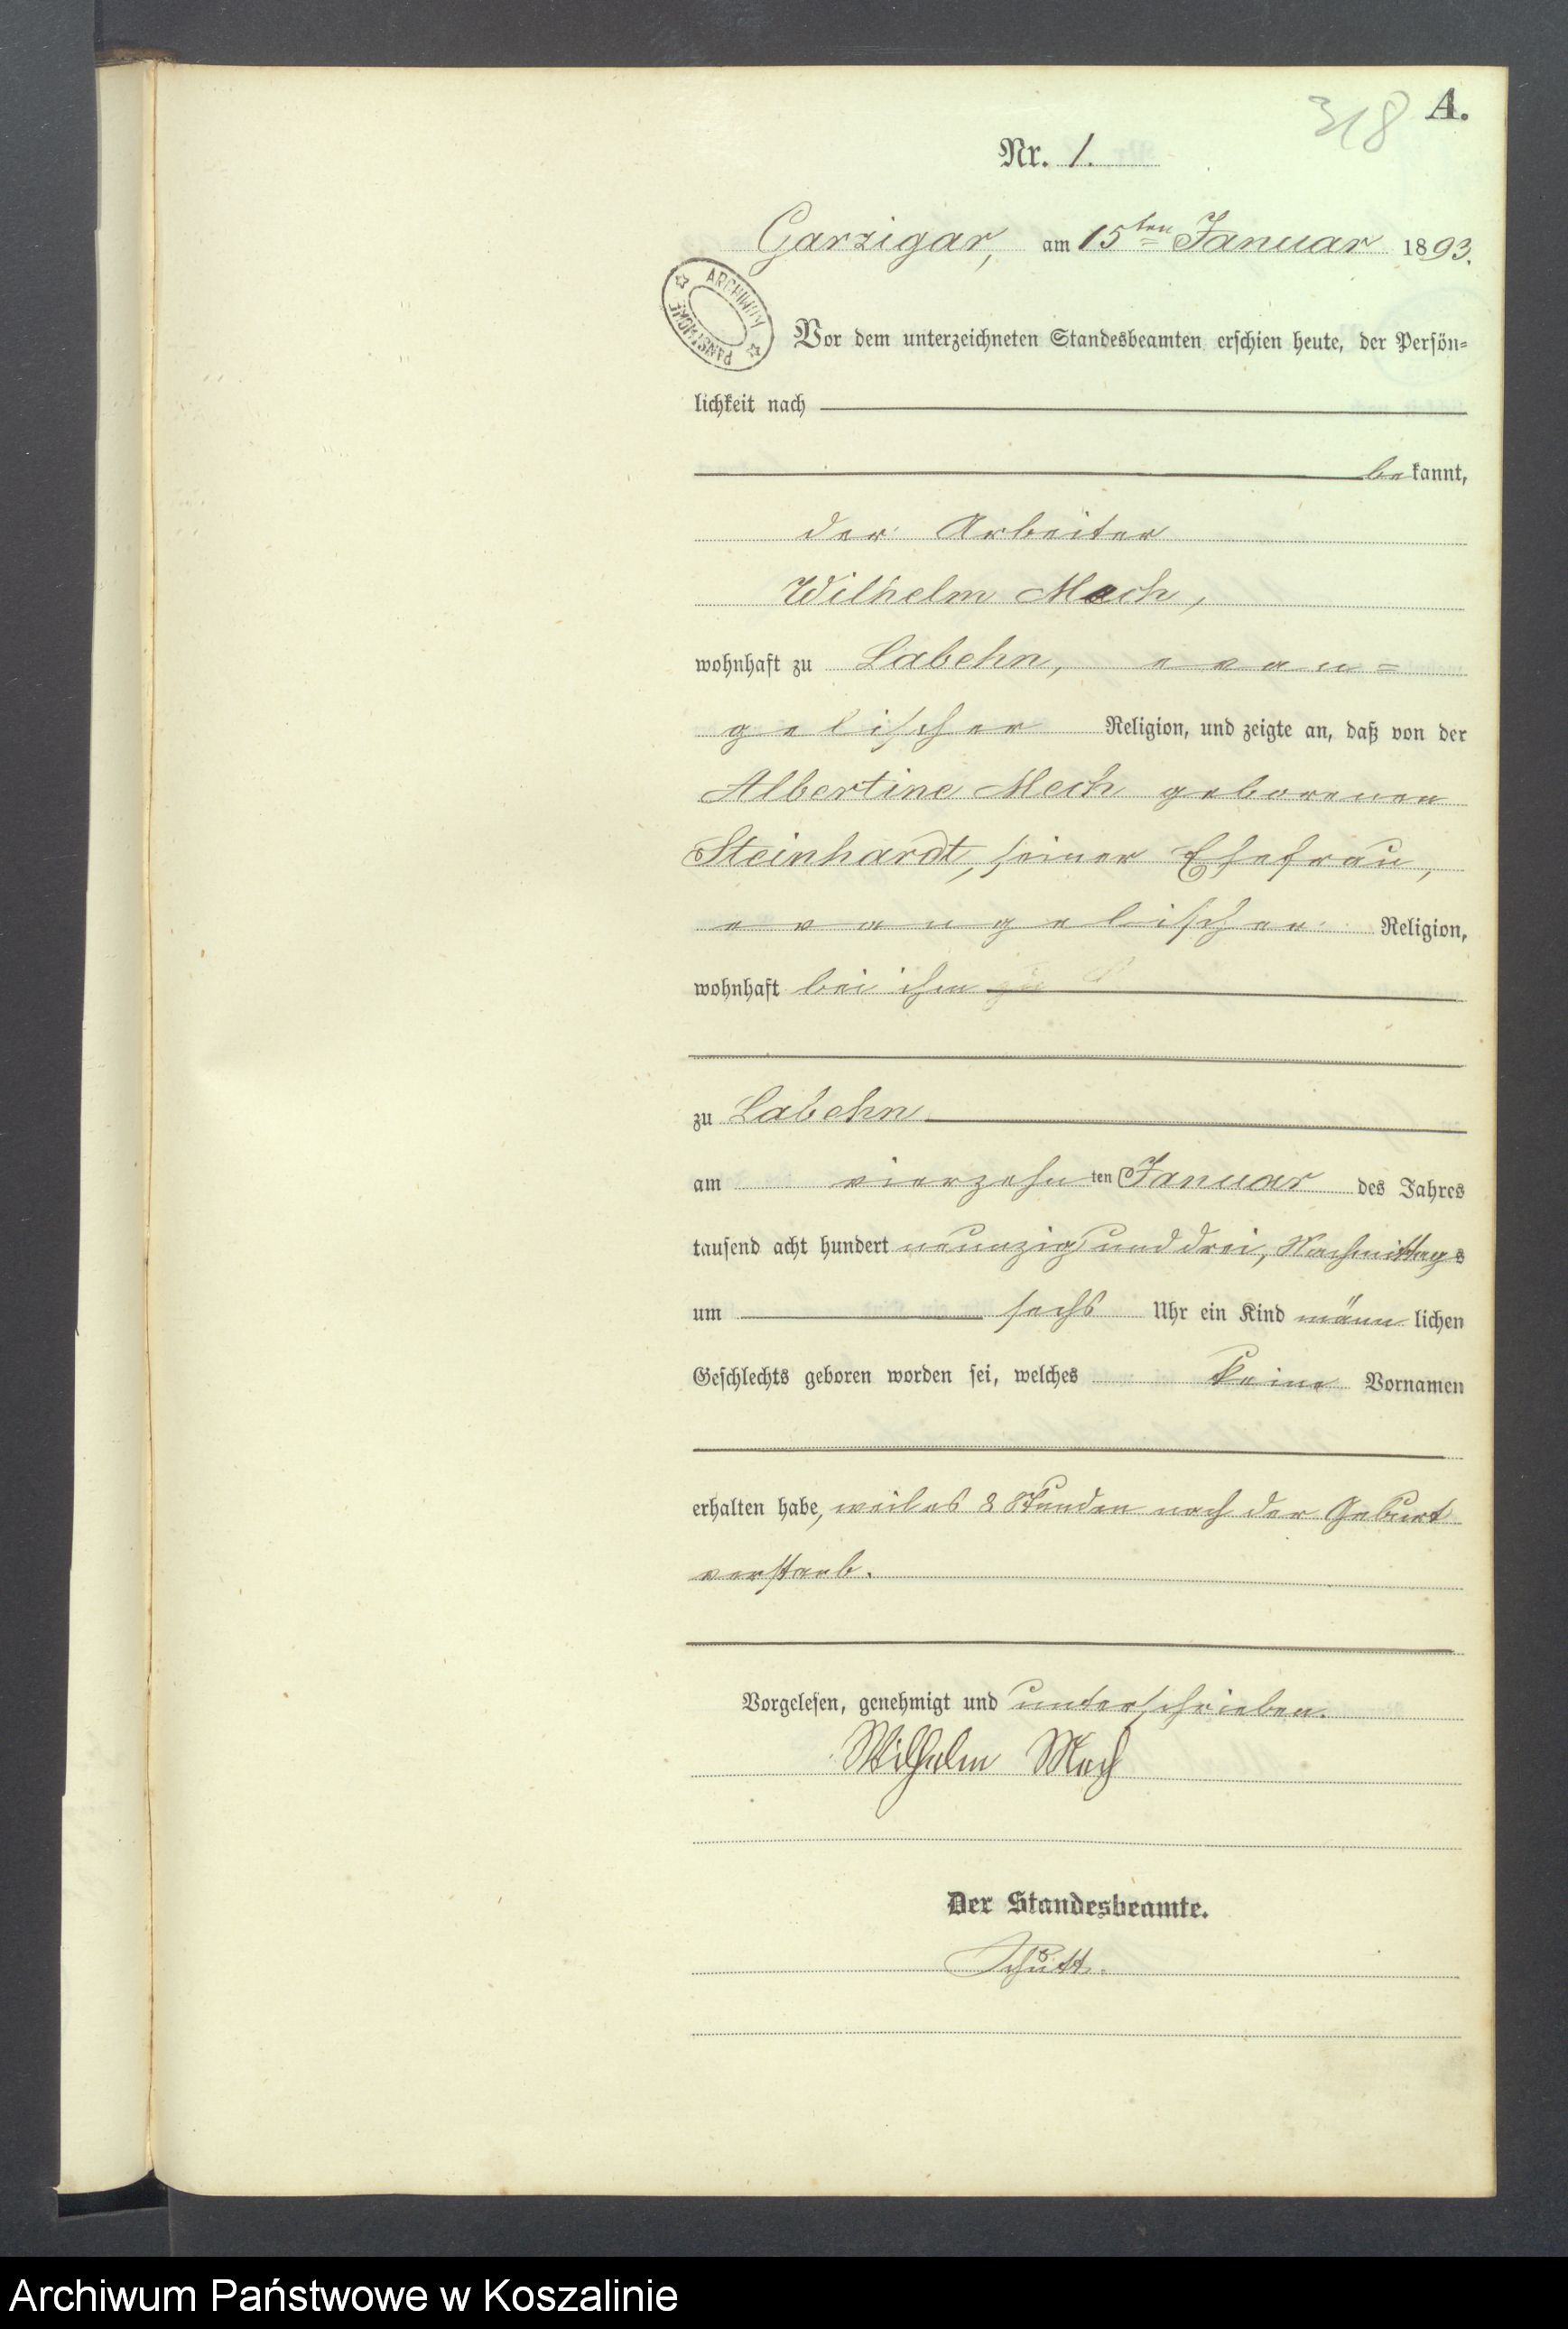 318 A.
Nr. 1.
Garzigar, am 15ten Januar 1893.
ARCHIWUM PAŃSTWOWE
Vor dem unterzeichneten Standesbeamten erschien heute, der Persön-
lichkeit nach
bekannt,
der Arbeiter
Wilhelm Mech,
wohnhaft zu Labehn, evan=
gelischer Religion, und zeigte an, daß von der
Albertine Mech geborenen
Steinhardt, seiner Ehefrau,
evangelischer Religion,
wohnhaft bei ihm
zu Labehn
am vierzehnten Januar des Jahres
tausend acht hundert neunzig und drei, Nachmittags
um sechs Uhr ein Kind männlichen
Geschlechts geboren worden sei, welches keine Vornamen
erhalten habe, weil es 8 Stunden nach der Geburt
verstarb.
Vorgelesen, genehmigt und unterschrieben.
Wilhelm Mech
Der Standesbeamte.
Schütt.
Archiwum Państwowe w Koszalinie